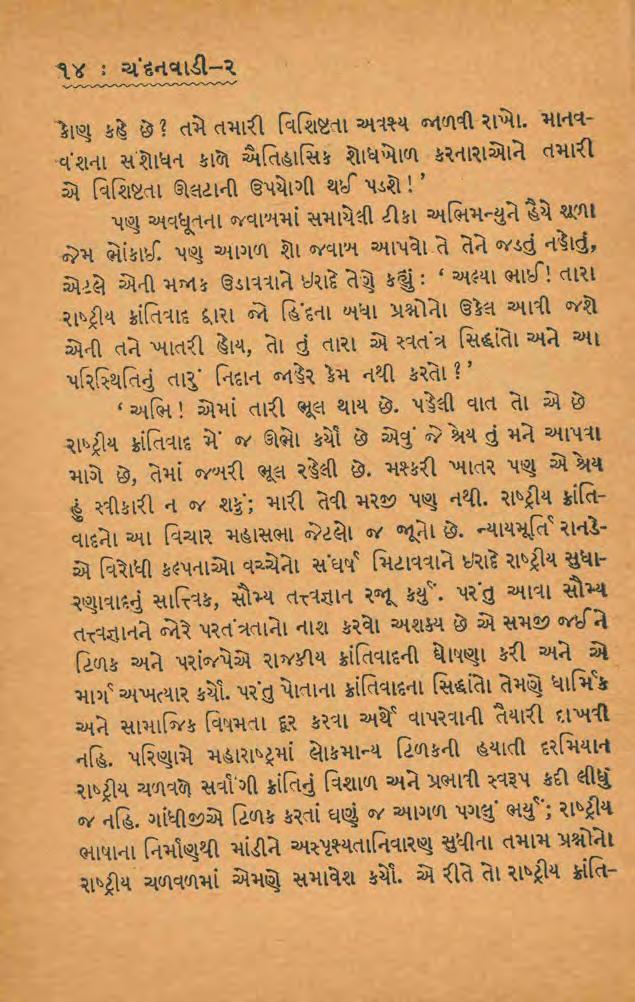 ૧૪ : ચંદનવાડી–૨
કોણ કહે છે? તમે તમારી વિશિષ્ટતા અવશ્ય જાળવી રાખો. માનવ-
વંશના સંશોધન કાળે ઐતિહાસિક શોધખોળ કરનારાઓને તમારી
એ વિશિષ્ટતા ઊલટાની ઉપયોગી થઈ પડશે!’
પણ અવધૂતના જવાબમાં સમાયેલી ટીકા અભિમન્યુને હૈયે શૂળા
જેમ ભોંકાઈ. પણ આગળ શો જવાબ આપવો તે તેને જડતું નહોતું,
એટલે એની મજાક ઉડાવવાને ઇરાદે તેણે કહ્યું : ‘ અલ્યા ભાઈ! તારા
રાષ્ટ્રીય ક્રાંતિવાદ દ્વારા જો હિંદના બધા પ્રશ્નોનો ઉકેલ આવી જશે
એની તને ખાતરી હોય, તો તું તારા એ સ્વતંત્ર સિદ્ધાંતો અને આ
પરિસ્થિતિનું તારું નિદાન જાહેર કેમ નથી કરતો?’
‘ અભિ! એમાં તારી ભૂલ થાય છે. પહેલી વાત તો એ છે
રાષ્ટ્રીય ક્રાંતિવાદ મેં જ ઊભો કર્યો છે એવું જે શ્રેય તું મને આપવા
માગે છે, તેમાં જબરી ભૂલ રહેલી છે. મશ્કરી ખાતર પણ એ શ્રેય
હું સ્વીકારી ન જ શકું; મારી તેવી મરજી પણ નથી. રાષ્ટ્રીય ક્રાંતિ-
વાદનો આ વિચાર મહાસભા જેટલો જ જૂનો છે. ન્યાયમૂર્તિ રાનડે-
એ વિરોધી કલ્પનાઓ વચ્ચેનો સંઘર્ષ મિટાવવાને ઇરાદે રાષ્ટ્રીય સુધા-
રણાવાદનું સાત્ત્વિક, સૌમ્ય તત્ત્વજ્ઞાન રજૂ કર્યું. પરંતુ આવા સૌમ્ય
તત્ત્વજ્ઞાનને જોરે પરતંત્રતાનો નાશ કરવો અશક્ય છે એ સમજી જઈને
ટિળક અને પરાંજપેએ રાજકીય ક્રાંતિવાદની ઘોષણા કરી અને એ
માર્ગ અખત્યાર કર્યો. પરંતુ પોતાના ક્રાંતિવાદના સિદ્ધાંતો તેમણે ધાર્મિક
અને સામાજિક વિષમતા દૂર કરવા અર્થે વાપરવાની તૈયારી દાખવી
નહિ. પરિણામે મહારાષ્ટ્રમાં લોકમાન્ય ટિળકની હયાતી દરમિયાન
રાષ્ટ્રીય ચળવળે સર્વાંગી ક્રાંતિનું વિશાળ અને પ્રભાવી સ્વરૂપ કદી લીધું
જ નહિ. ગાંધીજીએ ટિળક કરતાં ઘણું જ આગળ પગલું ભર્યું; રાષ્ટ્રીય
ભાષાના નિર્માણથી માંડીને અસ્પૃશ્યતાનિવારણ સુધીના તમામ પ્રશ્નોનો
રાષ્ટ્રીય ચળવળમાં એમણે સમાવેશ કર્યો. એ રીતે તો રાષ્ટ્રીય ક્રાંતિ-